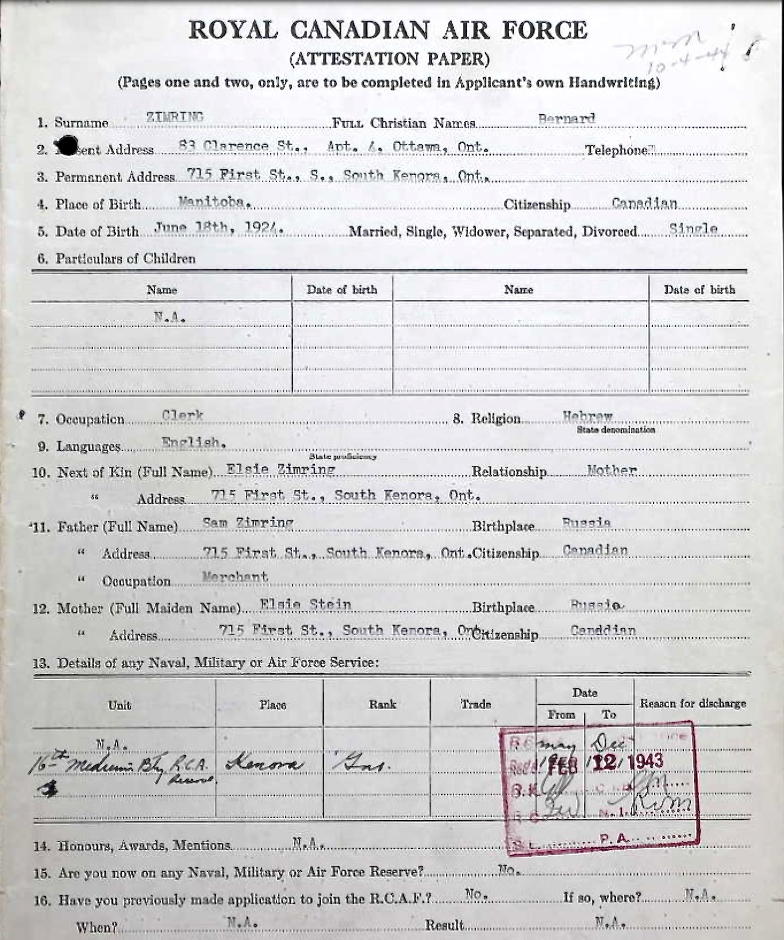 ROYAL CANADIAN AIR FORCE
(ATTESTATION PAPER)
10-4-44
(Pages one and two, only, are to be completed in Applicant's own Handwriting)
1. Surname ZIMRING FULL Christian Names Bernard
2. ent Address 83 Clarence St., Apt. 4. Ottawa, Ont. Telephone
3. Permanent Address 715 First St., S., South Kenora, Ont.
4. Place of Birth Manitoba. Citizenship Canadian
5. Date of Birth June 18th, 1924. Married, Single, Widower, Separated, Divorced Single
6. Particulars of Children
Name Date of birth Name Date of birth
N.A.
7. Occupation Clerk 8. Religion Hebrew
State denomination
9. Languages English.
State proficiency
10. Next of Kin (Full Name) Elsie Zimring Relationship Mother
" Address 715 First St., South Kenora, Ont.
11. Father (Full Name) Sam Zimring Birthplace Russia
" Address 715 First St., South Kenora, Ont. Citizenship Canadian
" Occupation Merchant
12. Mother (Full Maiden Name) Elsie Stein Birthplace Russia
" Address 715 First St., South Kenora, Ont. Citizenship Canddian
13. Details of any Naval, Military or Air Force Service:
Unit Place Rank Trade Date Reason for discharge
From To
N.A. May Dec
16th Medium Bty R.C.A. Kenora Gnr. FEB 12 1943
Reserve.
N.I.
P.A.
14. Honours, Awards, Mentions N.A.
15. Are you now on any Naval, Military or Air Force Reserve? No.
16. Have you previously made application to join the R.C.A.F.? No. If so, where? N.A.
When? N.A. Result N.A.